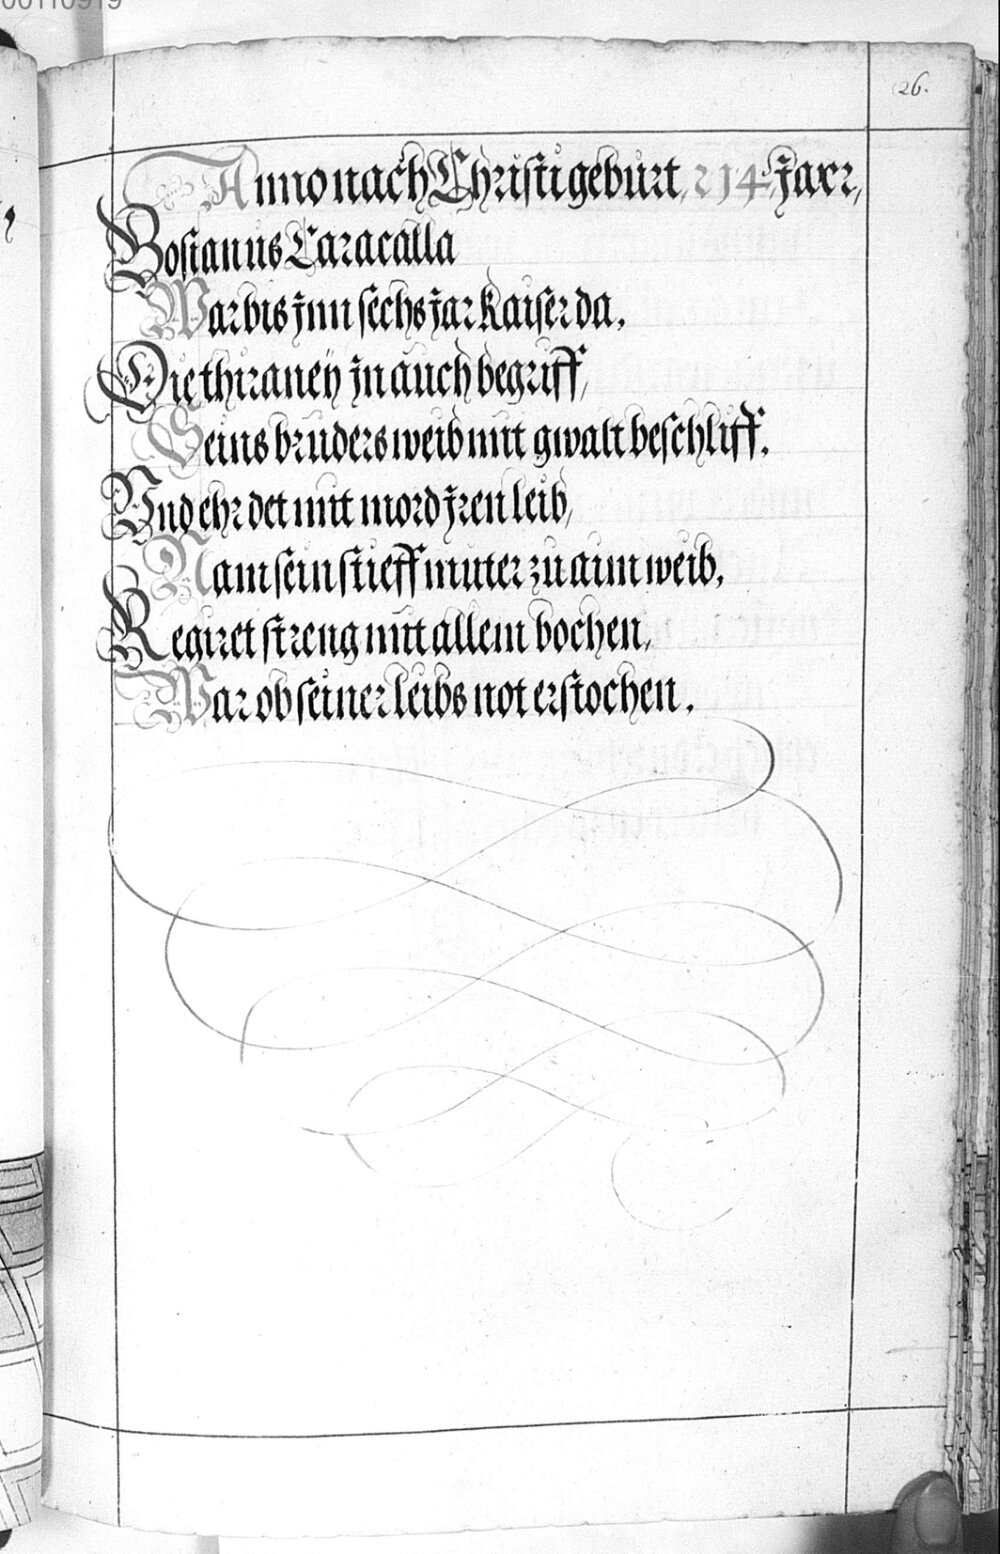 00110919
26.
Anno nach Christi geburt, 214 Jaer,
Bosianus Caracalla
War bis jnn sechs jar Kaiser da,
Die thiraney jn auch begriff,
Seins bruders weib mit gwalt beschliff.
Vnd ehr det mit mord jren leib,
Nam sein stieffmuter zu aim weib,
Regiret streng mit allem bochen,
War ob seiner leibs not erstochen.